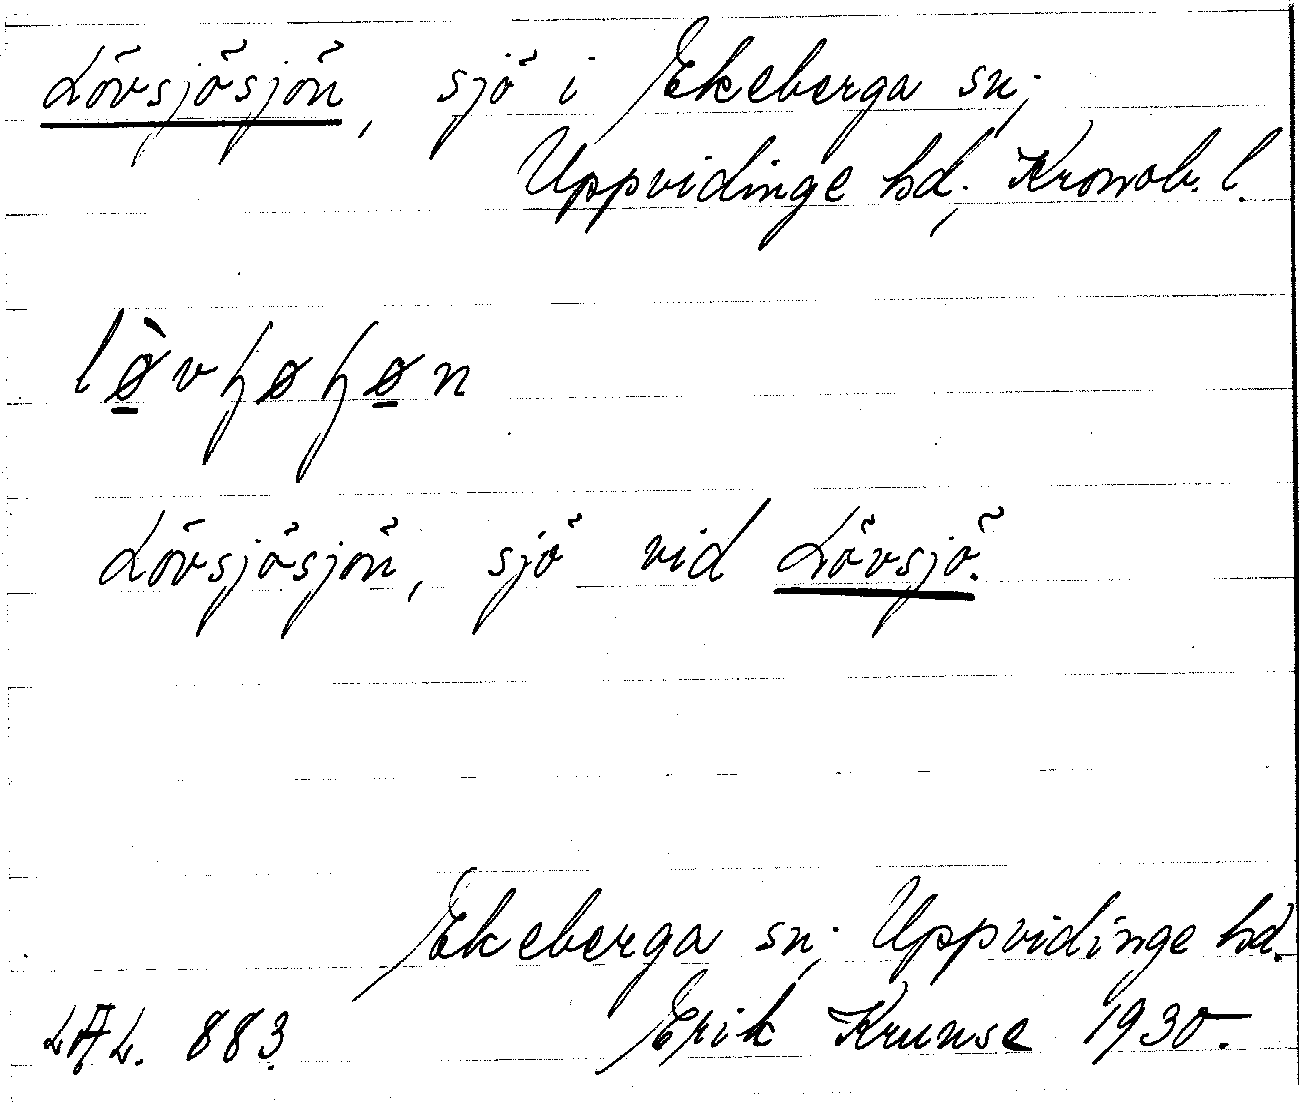 Lövsjösjön, sjö i Ekeberga sn,
Uppvidinge hd, Kronob. l.
lø̠̀vꜧøꜧø̠n
Lövsjösjön, sjö vid Lövsjö.
Ekeberga sn, Uppvidinge hd.
LAL. 883. Erik Krunse 1930.